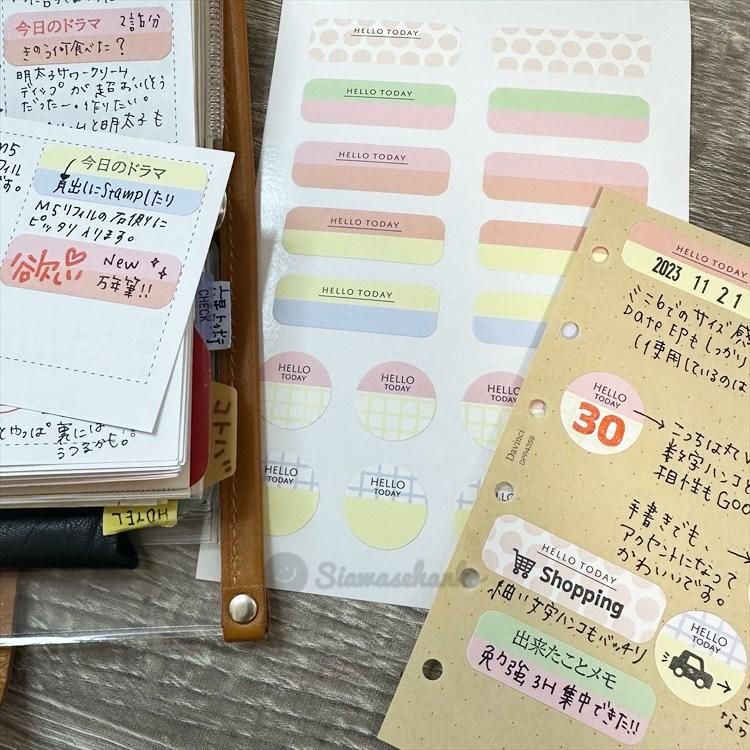 今日のドラマ 2話分
きのう何食べた?
明太子サワークリーム
ディップが超おいしそう
だったー。作りたい。
クリームと明太子も
今日のドラマ
見出しにStampしたり
M5リフィルの右側に
ピッタリ入ります。
欲しい New
万年筆!!
M5
フィル
です。
CHECK
コクハン
HOTEL
とやっぱ裏には
うつるかも。
HELLO TODAY
HELLO TODAY
HELLO TODAY
HELLO TODAY
HELLO TODAY
HELLO
TODAY
HELLO
TODAY
HELLO
TODAY
HELLO
TODAY
HELLO
TODAY
Siawasehanko
HELLO TODAY
2023 11 21
ミニ6でのサイズ感
Date EPもしっかり
(使用しているのは
HELLO
TODAY
30
→こっちは丸い
数字ハンコと
相性もGoo
DaVinci
DPR4259
手書きでも、
アクセントになって
かわいいです。
HELLO TODAY
Shopping
細い文字ハンコもバッチリ
HELLO
TODAY
出来たことメモ
勉強3H集中できた!!